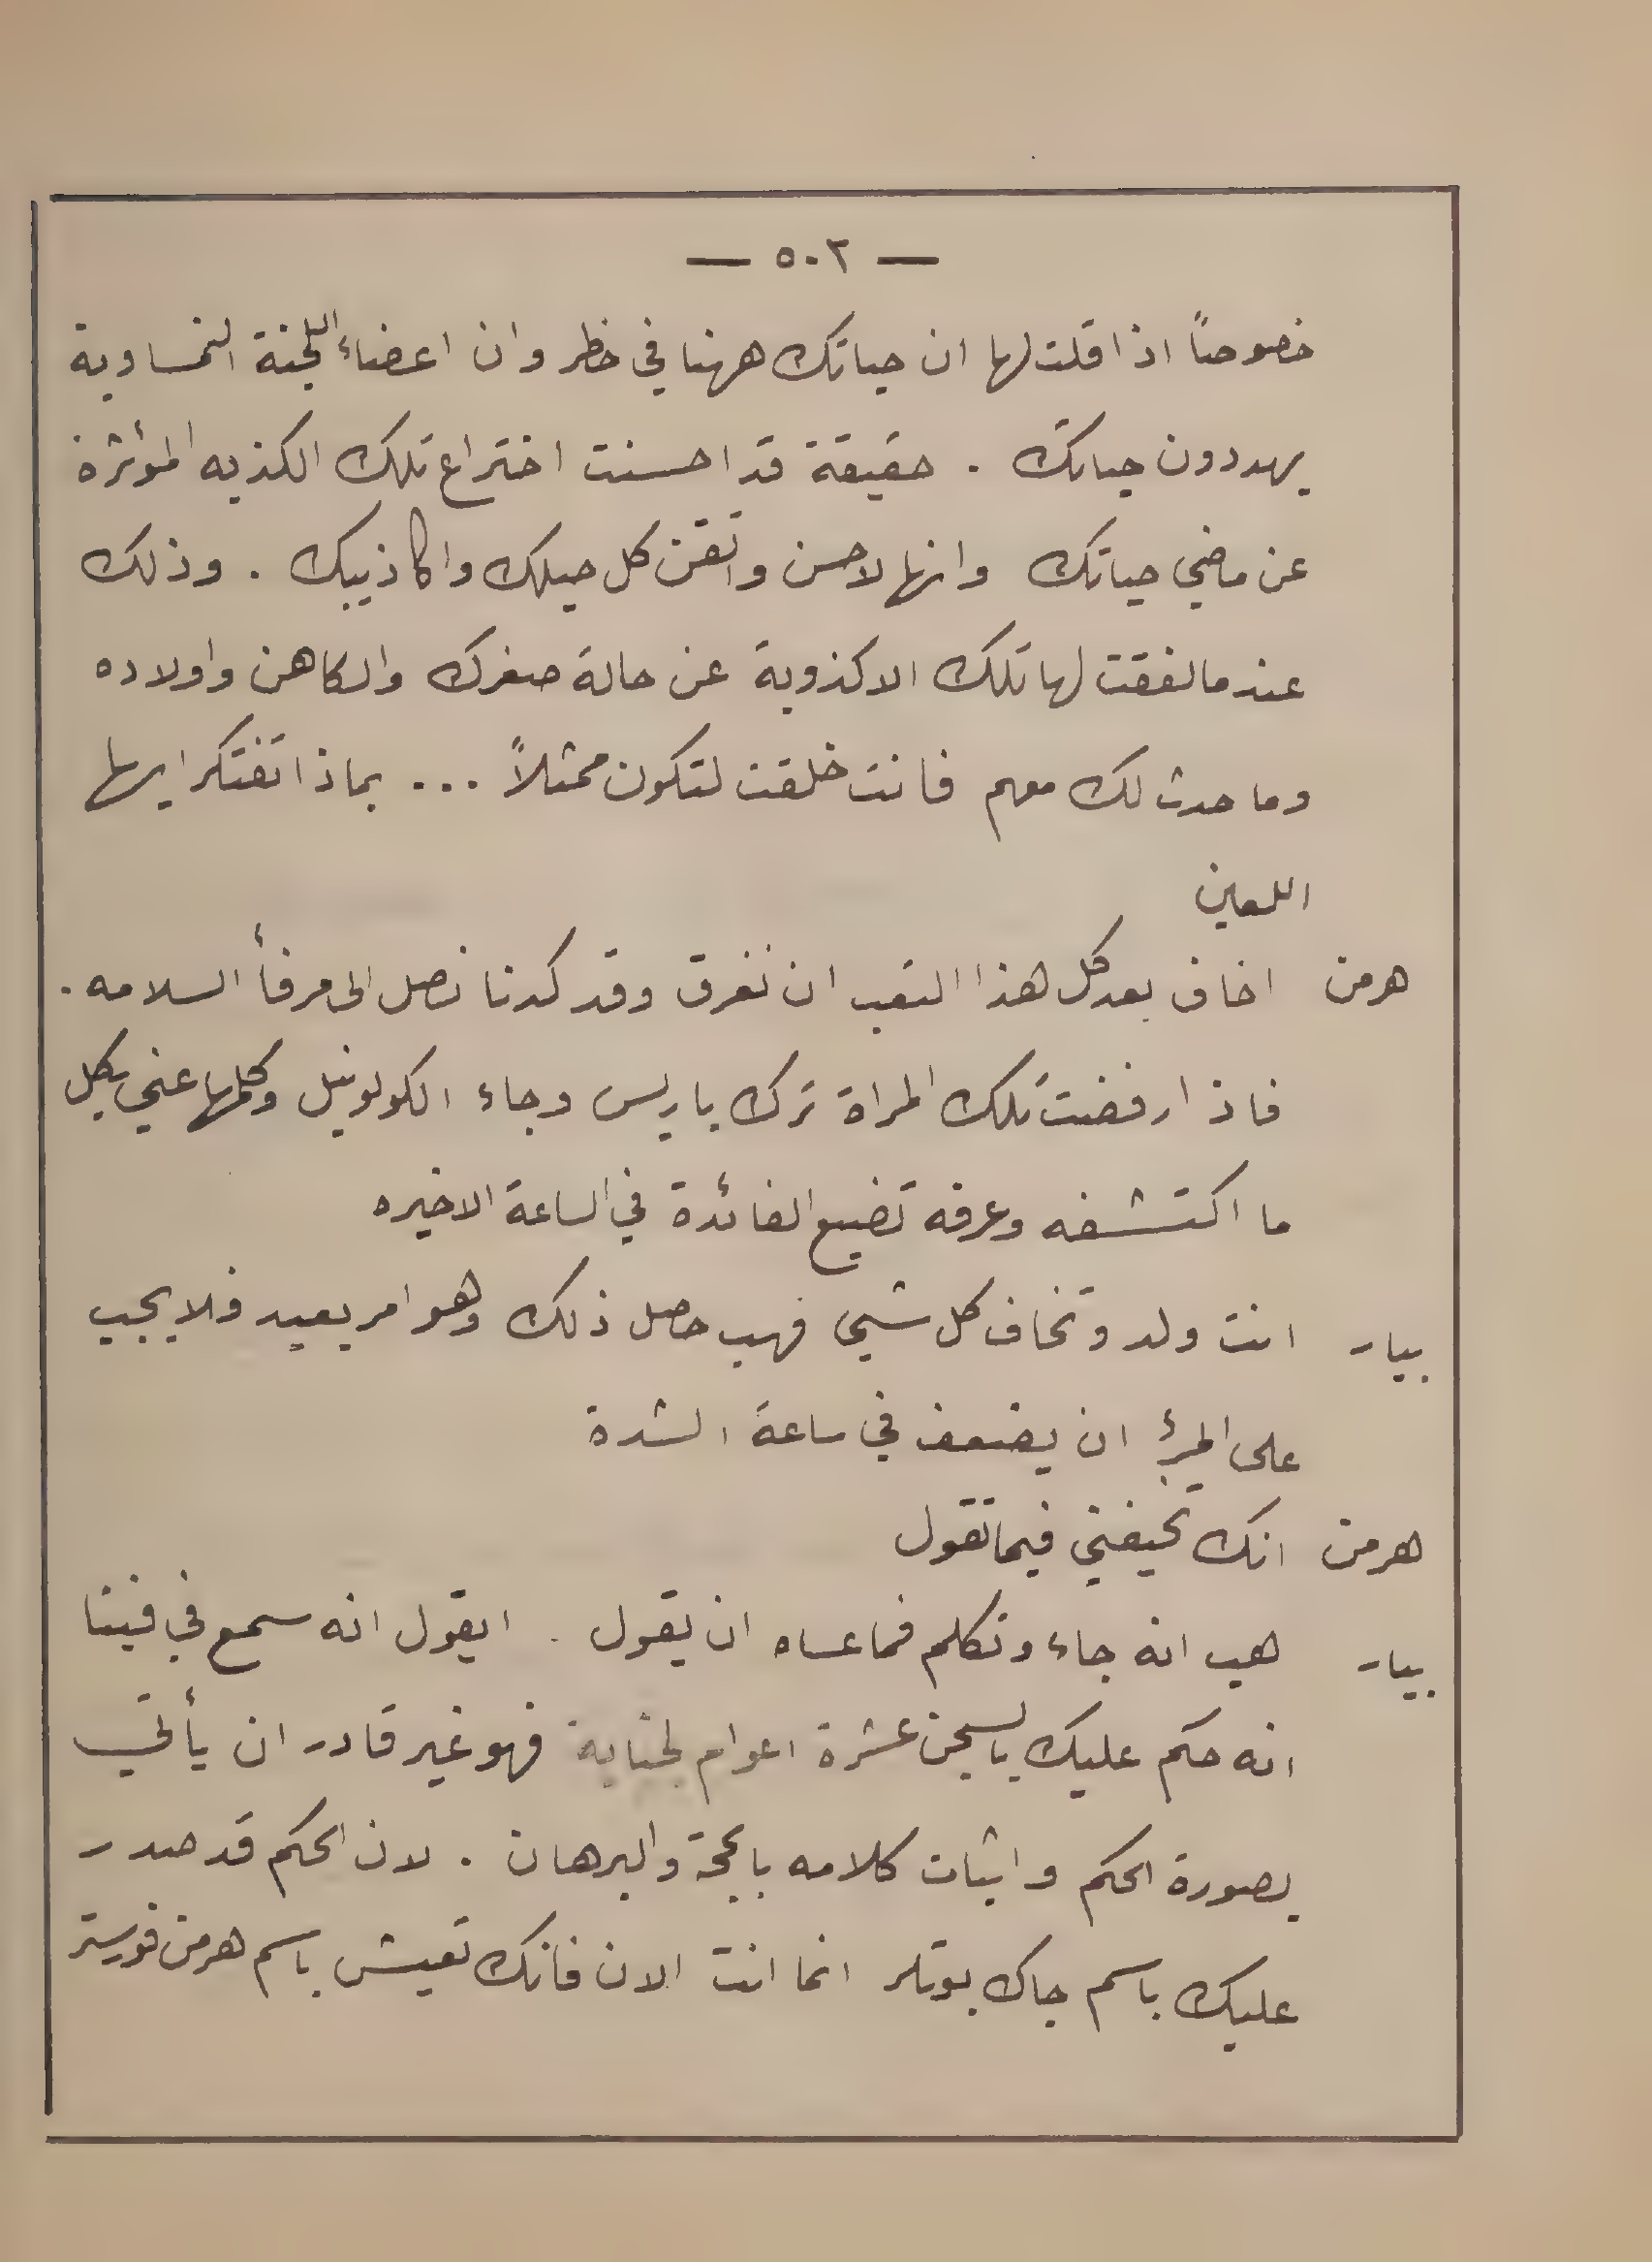 — ٥٠٢ —
خصوصاً اذا قلت لها ان حياتك ههنا في خطر وان اعضاء اللجنة النمساوية
يهددون حياتك . حقيقة قد احسنت اختراع تلك الكذبه المؤثرة
عن ماضي حياتك وانها لاحسن واتقن كل حيلك واكاذيبك . وذلك
عندما لفقت لها تلك الاكذوبة عن حالة صغرك والكاهن واولاده
وما حدث لك معهم فانت خلقت لتكون ممثلاً ... بماذا تفتكر ايها
اللعين
هرمن اخاف بعد كل هذا التعب ان نغرق وقد كدنا نصل الى مرفأ السلامه .
فاذا رفضت تلك المراة ترك باريس وجاء الكولونيل وكلمها عني بكل
ما اكتشفه وعرفه تضيع الفائدة في الساعة الاخيره
بيار انت ولد وتخاف كل شيى فهب حصل ذلك وهو امر بعيد فلا يجب
على المرئ ان يضعف في ساعة الشدة
هرمن انك تخيفني فيما تقول
بيار هب انه جاء وتكلم فما عساه ان يقول . ايقول انه سمع في فينا
انه حكم عليك بالسجن عشرة اعوام لجناية فهو غير قادر ان يأتي
بصورة الحكم واثبات كلامه بالحجة والبرهان . لان الحكم قد صدر
عليك باسم جاك بوتلر انما انت الان فانك تعيش باسم هرمن فورستر